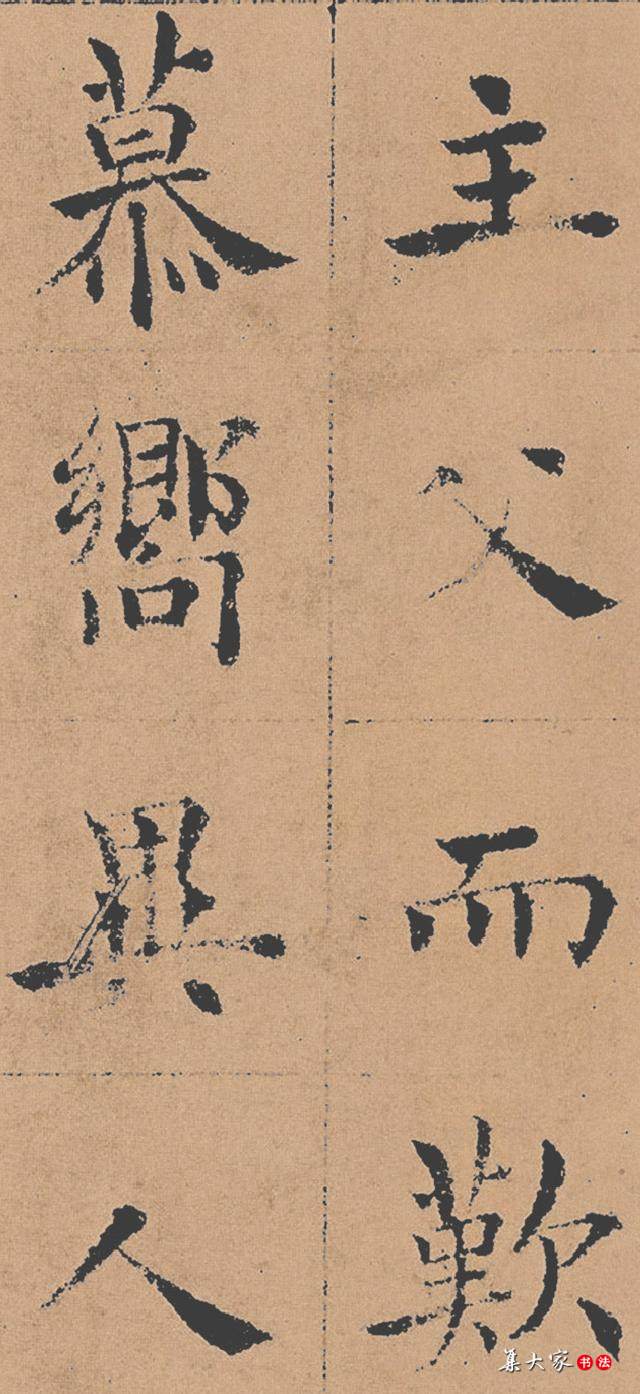 主父而歎
慕嚮異人
集大家书法